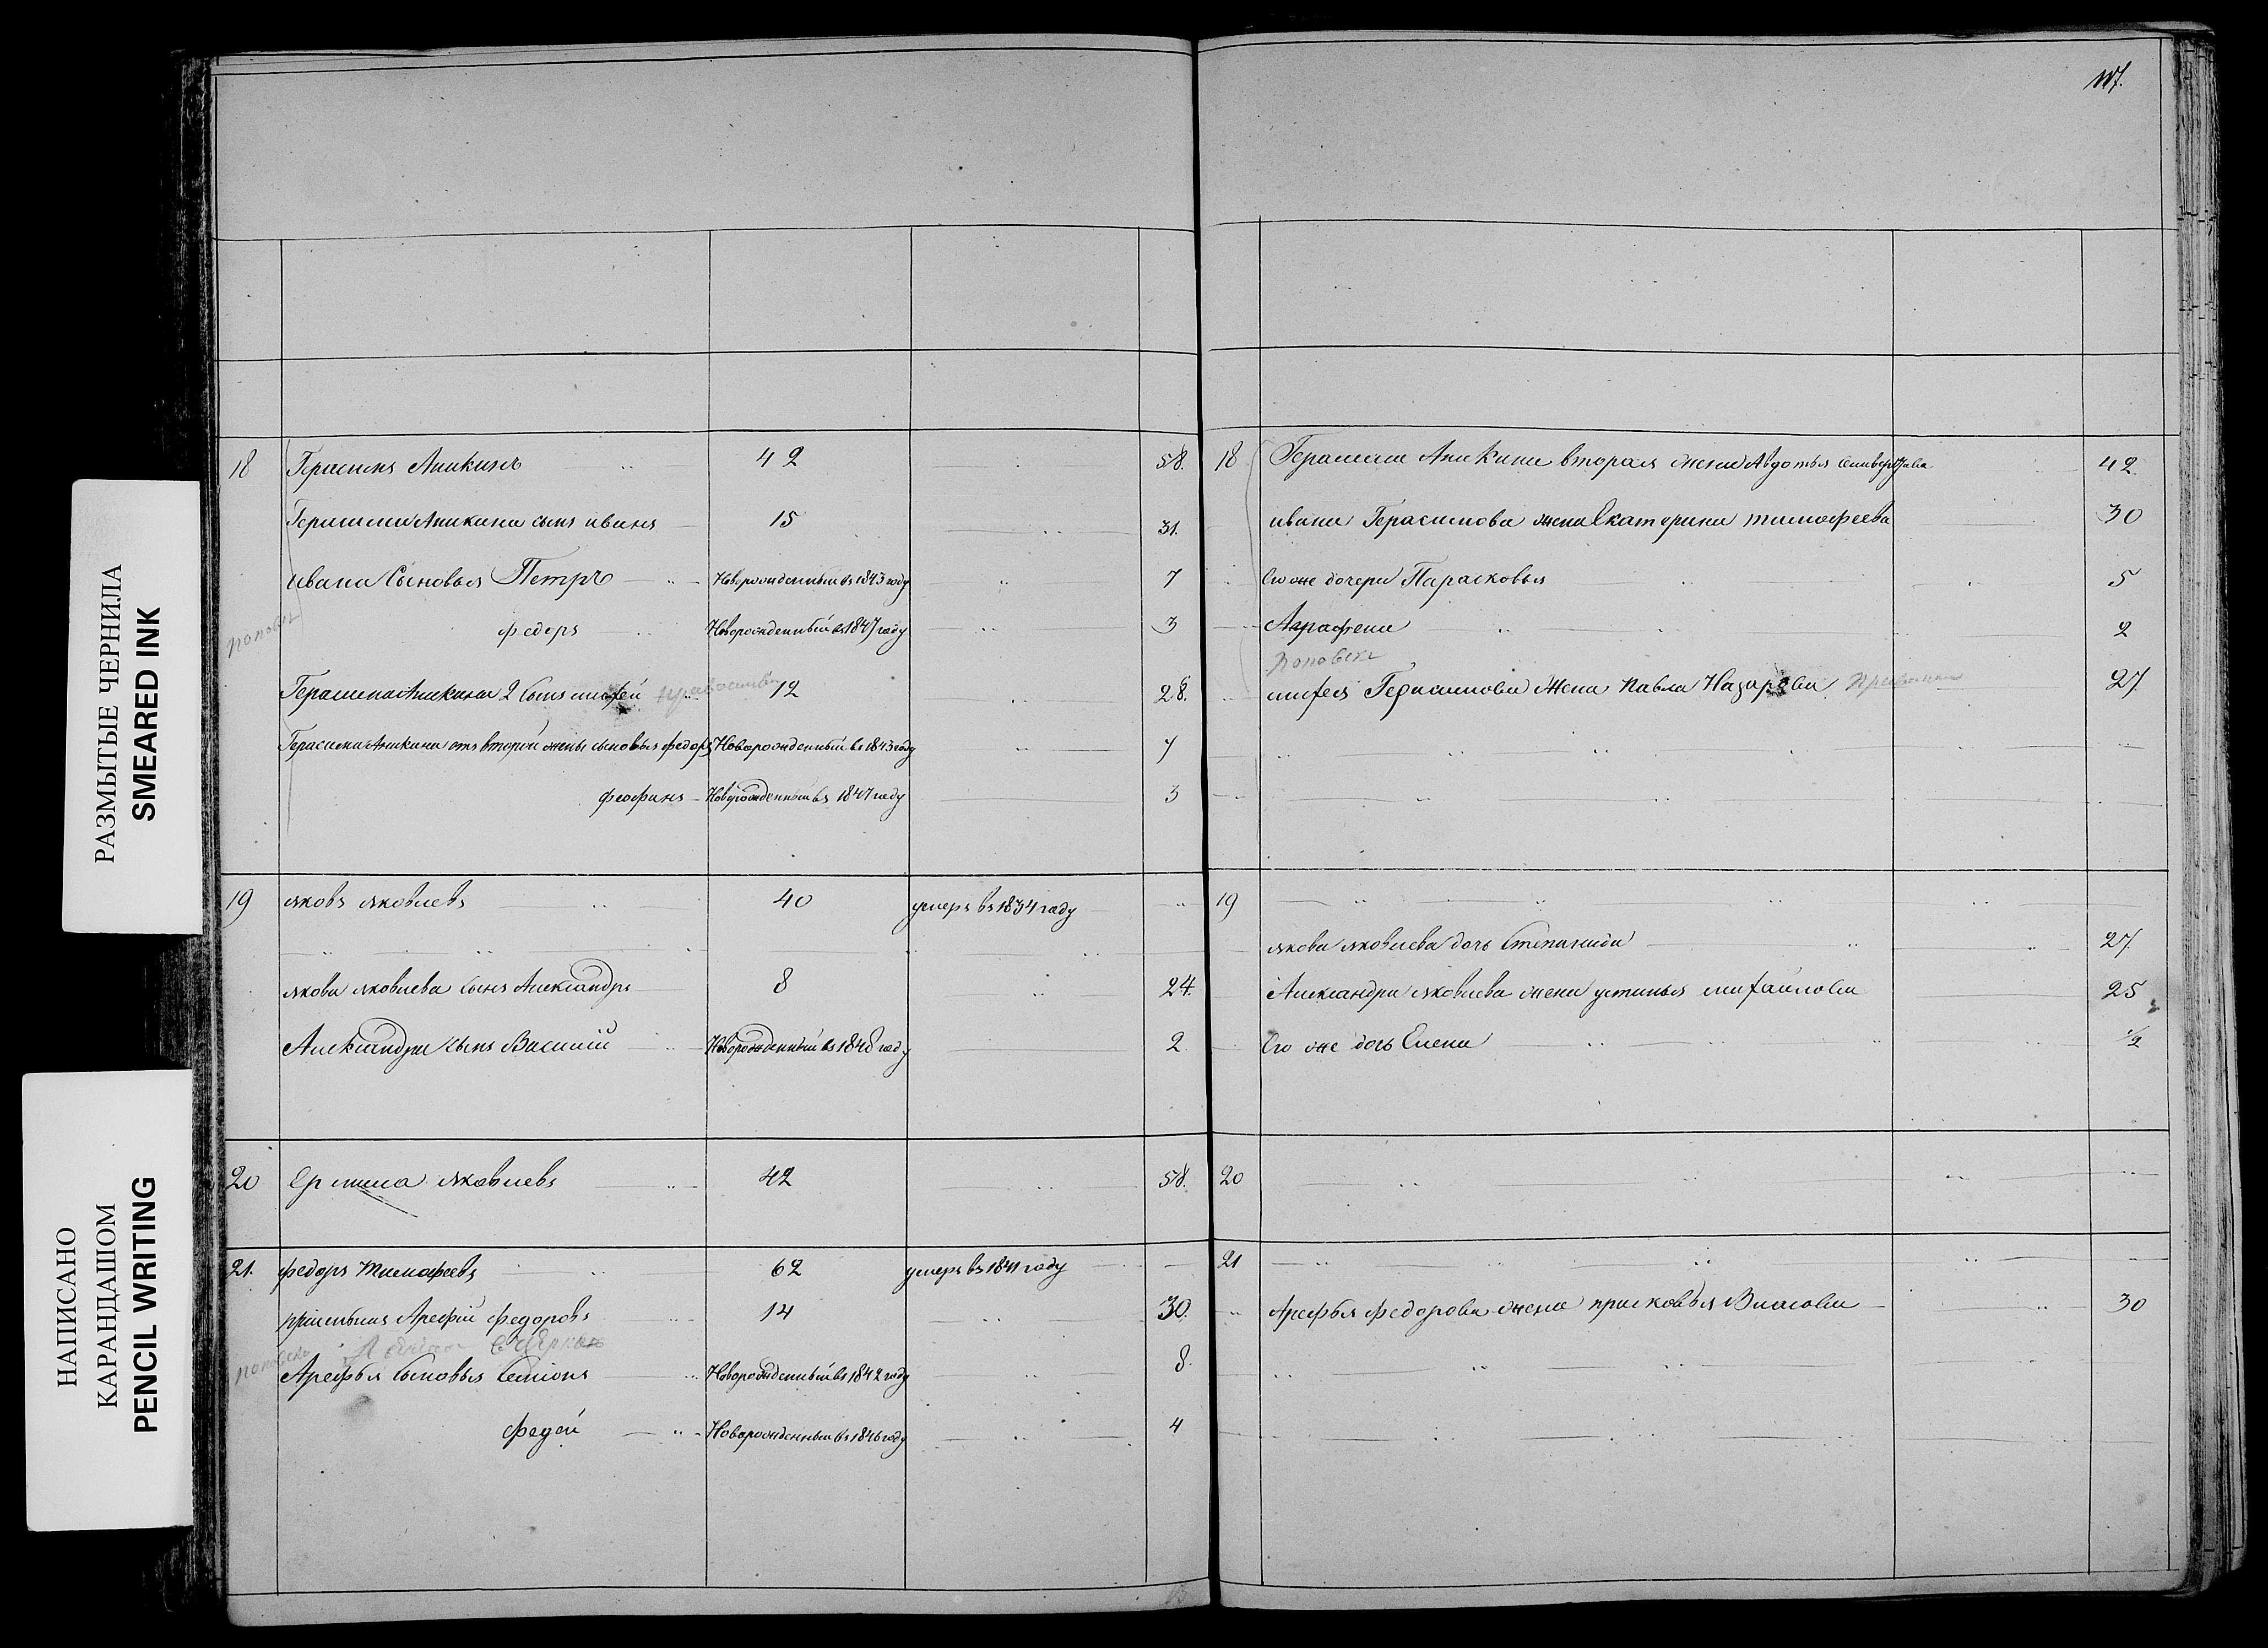 РАЗМЫТЫЕ ЧЕРНИЛА
SMEARED INK
НАПИСАНО
КАРАНДАШОМ
PENCIL WRITING
18 Герасимъ Аникинъ 42 58.
Герасима Аникина сынъ иванъ 15 31.
ивана Сыновья Петръ Новорожденный въ 1843 году 7
федоръ Новорожденный въ 1847 году 3
поповск
Герасима Аникина 2 Сынъ михей 12 28.
Герасима Аникина отъ второй жены сыновья федоръ Новорожденный въ 1843 году 7
феофанъ Новорожденный въ 1847 году 3
19 яковъ яковлевъ 40 умеръ въ 1834 году
якова яковлева Сынъ Александръ 8 24.
Александра сынъ Василий Новорожденный въ 1848 году 2
20 Ермила яковлевъ 42 58.
21. федоръ тимофеевъ 62 умеръ въ 1841 году
приемышъ Арефий федоровъ 14 30.
поповск
Арефья Сыновья Семионъ Новорожденный въ 1842 году 8.
Фадей Новорожденный въ 1846 году 4
18 Герасима Аникина вторая жена Авдотья 42.
ивана Герасимова жена Екатерина тимофеева 30
Его же дочери Парасковья 5
Аграфена 2
поповск
михея Герасимова Жена Павла Назарова 27.
19
якова яковлева дочь Степанида 27.
Александра яковлева жена устинья михайлова 25
Его же дочь Елена 1/2
20
21
Арефья федорова жена прасковья Власова 30